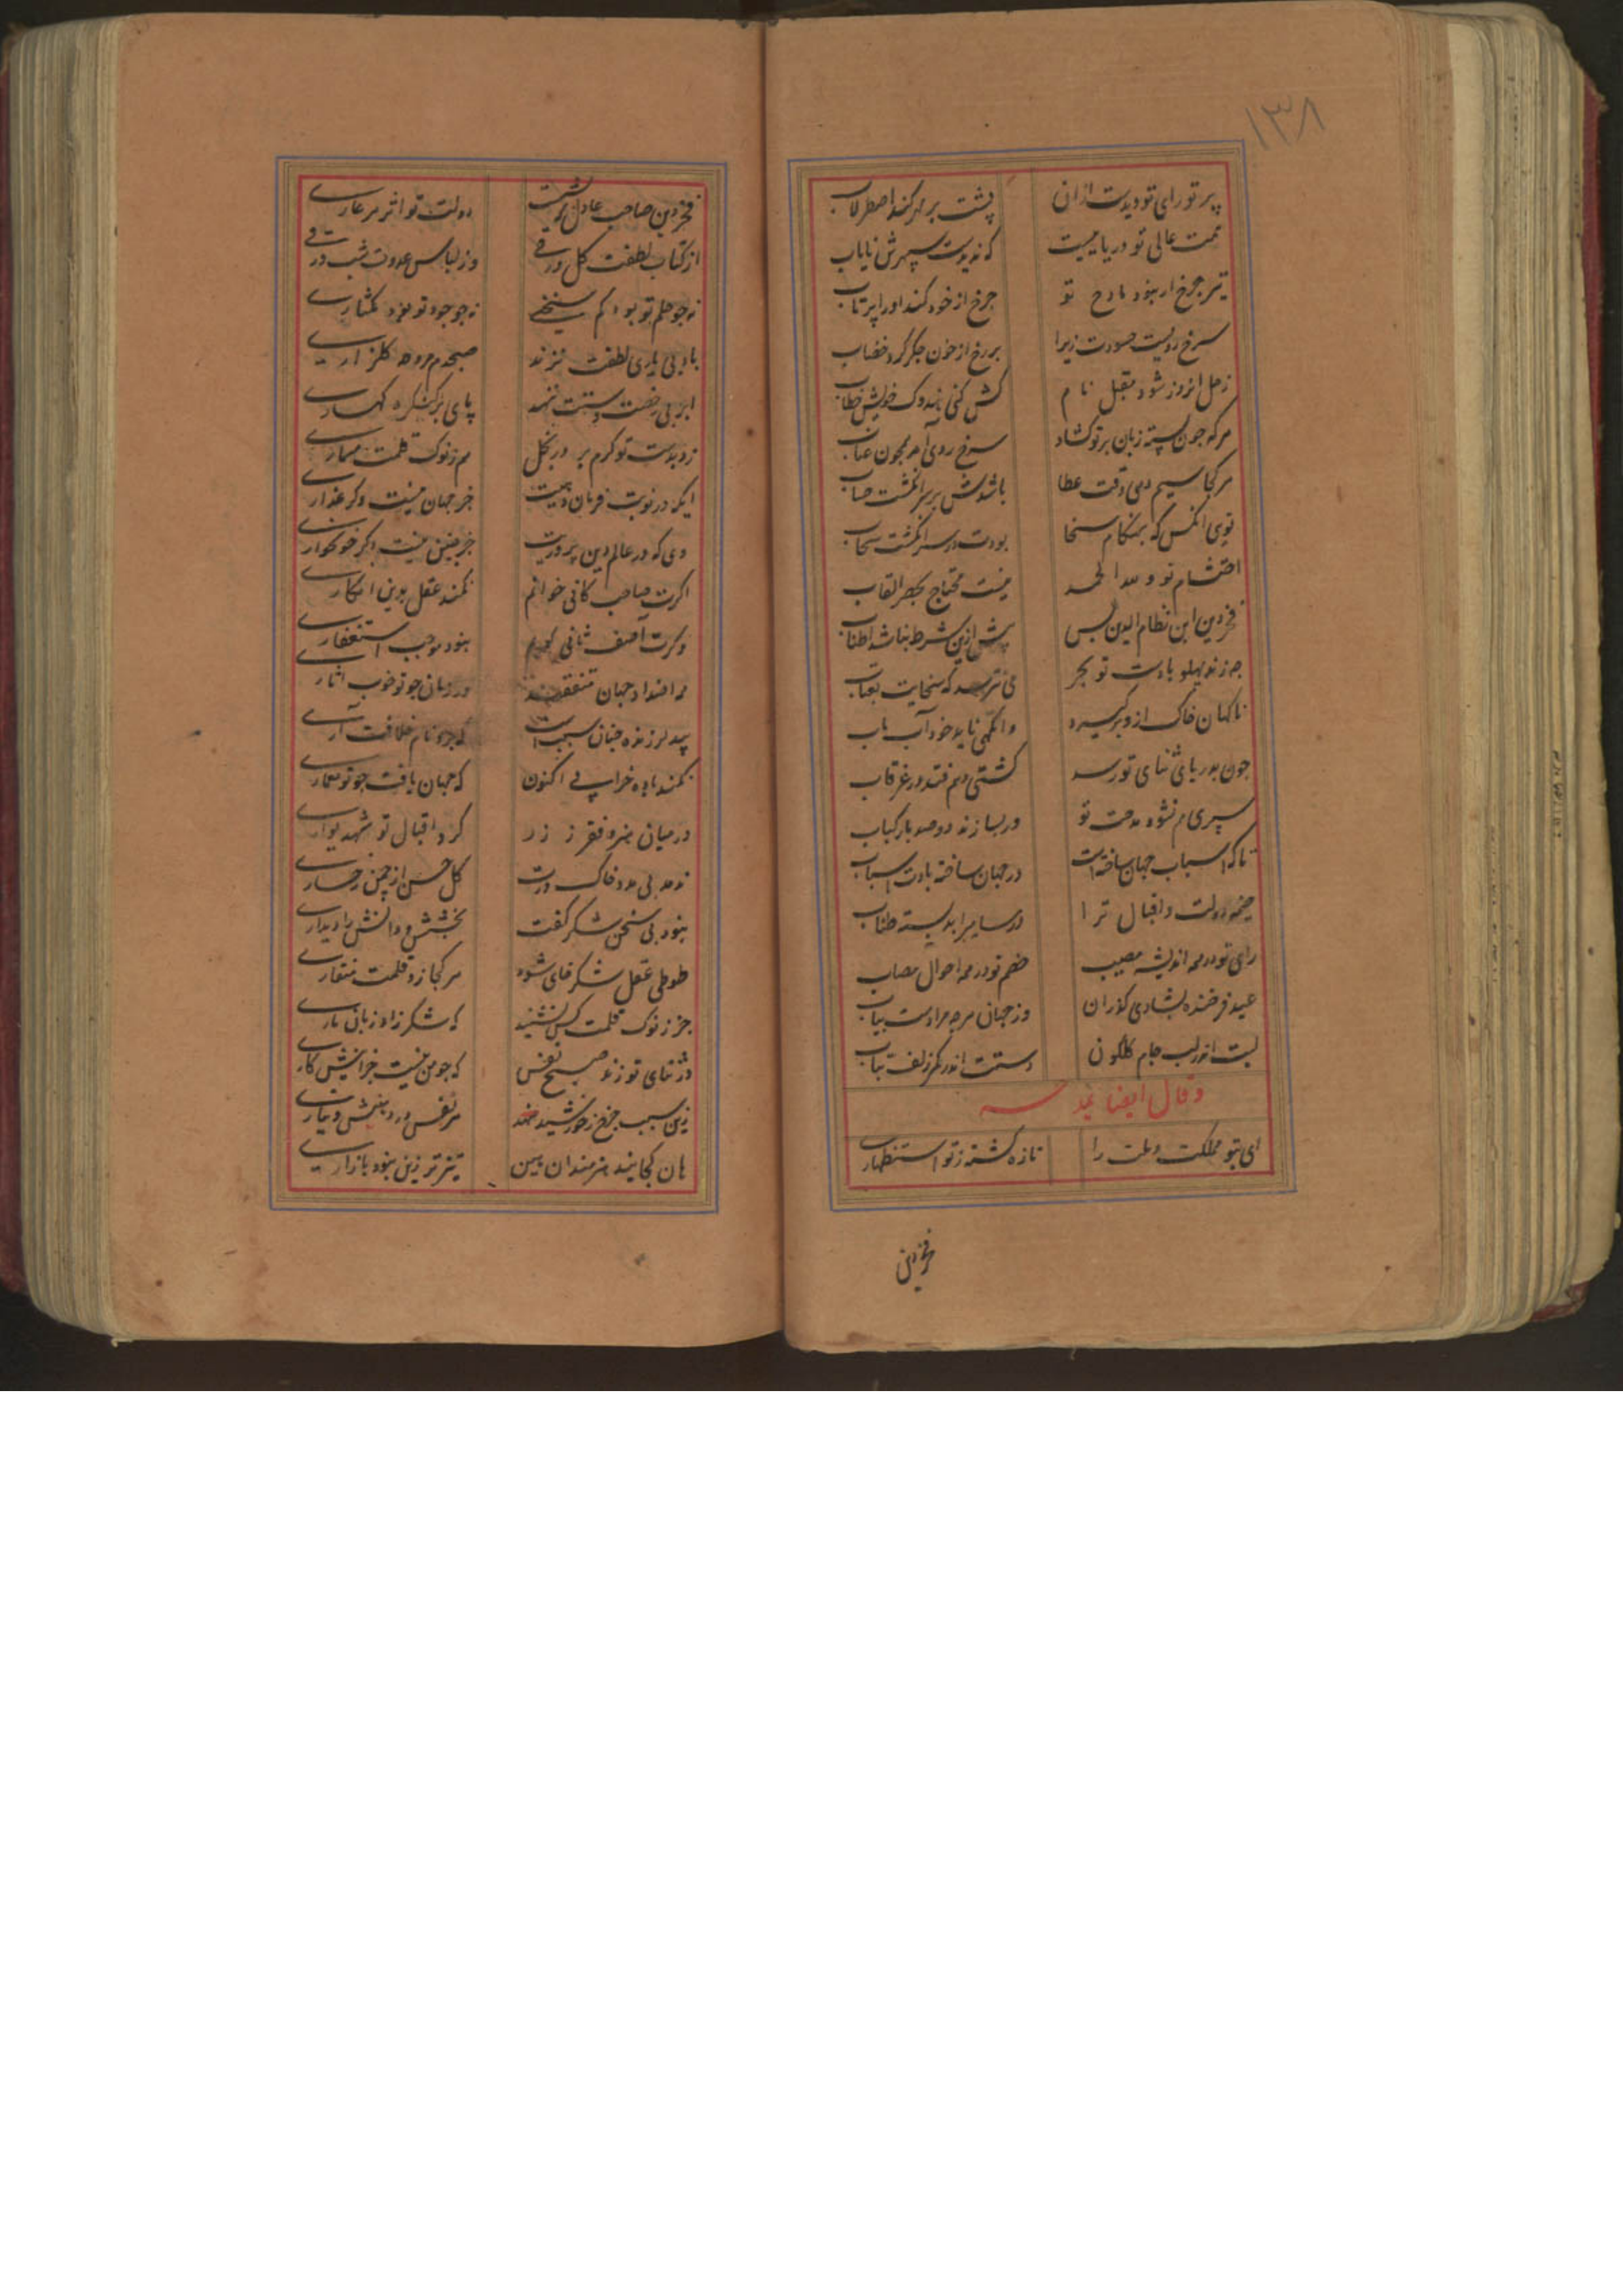 ۱۳۸
پرتو رای تو دیدست ازان پشت بر مهر کند اصطرلاب
همت عالی تو دریاییست که ندیدست سپهرش نایاب
تیر چرخ ار نبود مادح تو چرخ از خود کند اورا پرتاب
سرخ رویست حسودت زیرا بر رخ از خون جگر کرد خضاب
زحل امروز شود مقبل نام کش کنی هندوک خویش خطاب
هرکه جون پسته زبان بر تو کشاد سرخ روی آمد همجون عناب
هرکجا سیم دهی وقت عطا باشدش بر سر انگشت حساب
توی آنکس که بهنکام سخا بودت در سر انکشت سحاب
احتشام تو و لله الحمد نیست محتاج بحصر القاب
فخر دین ابن نظام الدین بس بیش ازین شرط نباشد اطناب
جه زند پهلو بادست تو بحر می نترسد که سخایت بعتاب
ناکهان خاک ازو برگیرد وانکهی ناید خود آب بآب
جون بدریای ثنای تو رسد کشتی وهم فتد در غرقاب
سپری هم نشود مدحت تو ور بسازند دو صد بار کتاب
تا که اسباب جهان ساخته است در جهان ساخته بادت اسباب
خیمه دولت و اقبال ترا در سایرا بد بسته طناب
رای تو در همه اندیشه مصیب خصم تو در همه احوال مصاب
عید فرخنده بشادی کذران وز جهان هرجه مرادست بیاب
لبت اندر لب جام کلکون دستت اندر کمر زلف بتاب
وقال ایضا یمدحه
ای بتو مملکت و ملت را تازه کشته ز تو استظهاری
فخر دین
فخر دین صاحب عادل که شدست دولت تو اثر هر عاری
از کتاب لطفت کل ورقی وز لباس عدوت شب در قی
نه جو حلم تو بود کم سنجی نه جو جود تو بود کمثاری
باد بی یاری لطفت نزند صبحدم مروحه کلزاری
ابر بی رخصت دستت ننهد پای بر کنکره کهساری
زد بدست تو کرم بر در بخل هم ز نوک قلمت مسماری
ایکه در نوبت فرمان دهیت جز جهان نیست دکر غداری
وی که در عالم دین پروریت جز یقین نیست دکر خونخواری
اکرت صاحب کافی خوانم نکند عقل بدین انکاری
وکرت آصف ثانی کویم نبود موجب استغفاری
همه اضداد جهان متفقند در زمان جو تو خوب آثاری
بید لرزنده جنان سبب است که برو نام خلافت آری
نکند باده خرابی اکنون که جهان یافت جو تو معماری
در میان هنر و فقر ز زر کرد اقبال تو شهد یواری
ندهد بی مدد خاک درت کل حسن از چمن رخساری
نبود بی سخن شکر گفت بخشش و دانش را دیداری
طوطی عقل شکر خای شود هرکجا زد قلمت منقاری
جز ز نوک قلمت کس نشنید که شکر زاد زبان ماری
در ثنای تو زند صبح نفس که جو من نیست جز اینش کاری
زین سبب جرخ ز خورشید نهد هر نفس در دهنش دیناری
هان کجایند هنرمندان هین تیزتر زین نبود بازاری